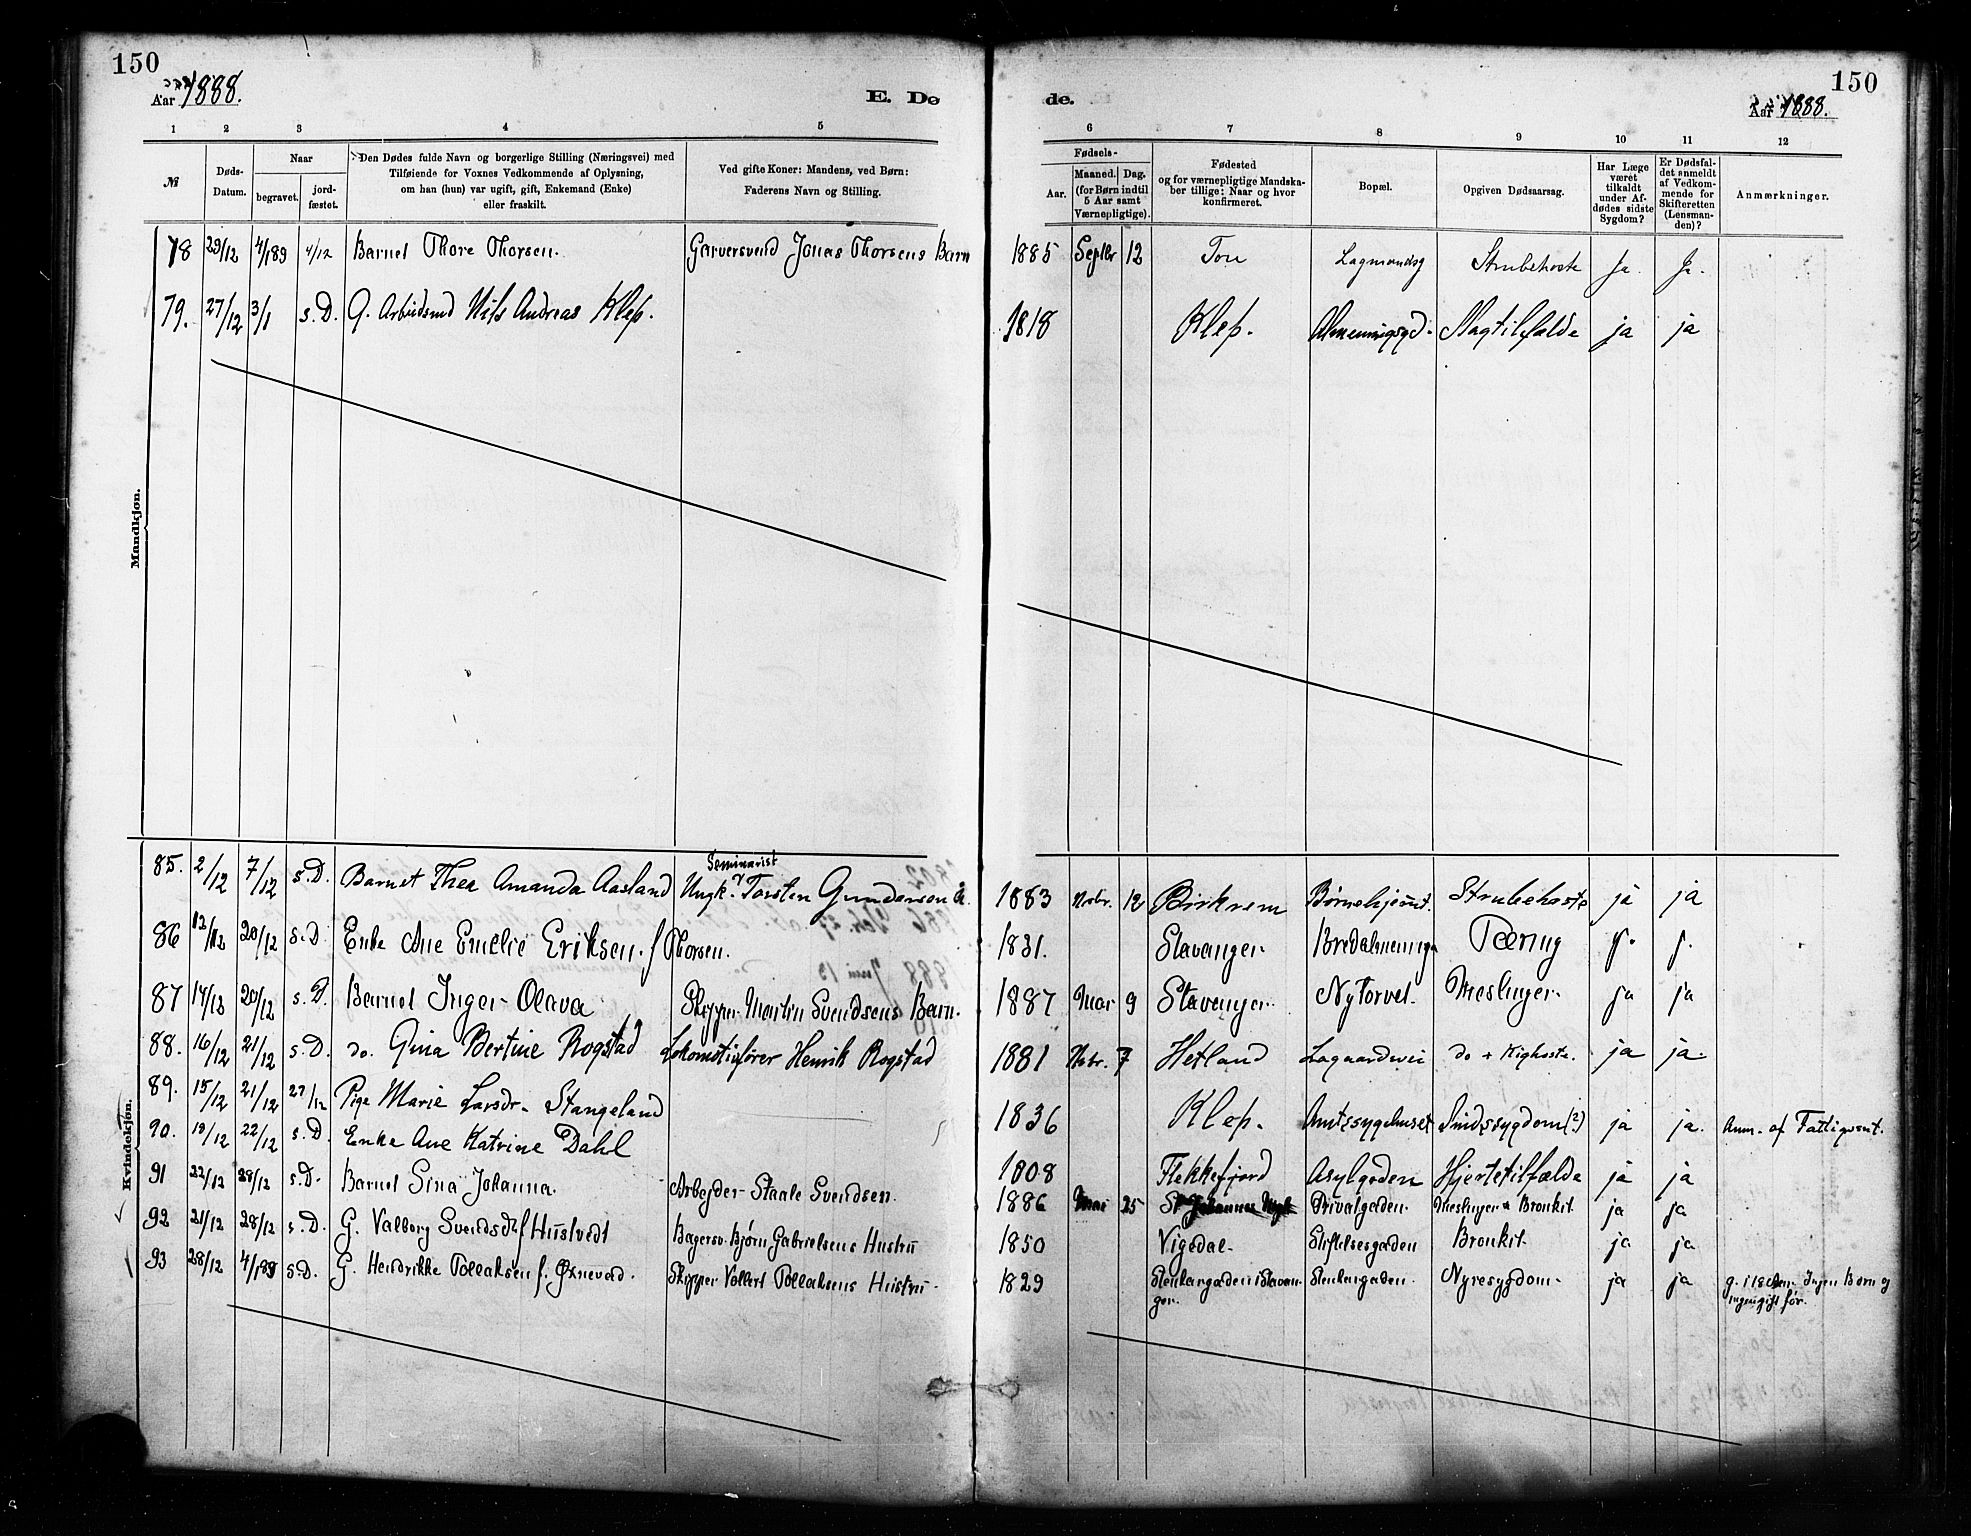 150
Aar 1888.
E. Dø
1 2 3 4 5
№
Døds-Datum.
Naar
begravet.
jord-fæstet.
Den Dødes fulde Navn og borgerlige Stilling (Næringsvei) med
Tilføiende for Voxnes Vedkommende af Oplysning,
om han (hun) var ugift, gift, Enkemand (Enke)
eller fraskilt.
Ved gifte Koner: Mandens, ved Børn:
Faderens Navn og Stilling.
Mandkjøn.
78 29/12 4/189 4/12 Barnet Thore Thorsen. Garversvend Jonas Thorsens Barn
79. 27/12 3/1 s.D. G. Arbeidsmd Nils Andreas Klep.
Kvindekjøn.
Seminarist
85. 2/12 7/12 s.D. Barnet Thea Amanda Aasland Ungk. Torsten Gundersen
86 12/12 20/12 s.D. Enke Ane Emelie Eriksen f Thorsen.
87 14/12 20/12 s.D. Barnet Inger Olava Skipper Martin Svendsens Barn.
88. 16/12 21/12 s.D. do. Gina Bertine Rogstad Lokomotivfører Henrik Rogstad
89. 15/12 21/12 27/12 Pige Marie Larsdr. Stangeland
90. 19/12 22/12 s.D. Enke Ane Katrine Dahl
91 22/12 28/12 s.D. Barnet Sina Johanna. Arbejder Staale Svendsen.
92 21/12 28/12 s.D. G. Valborg Svendsdtr f Hustvedt Bagersv. Bjørn Gabrielsens Hustru
93 28/12 4/189 s.D. G. Hendrikke Tollaksen f. Øxnevad. Skipper Vollert Tollaksens Hustru
de.
150
Aar 1888.
6 7 8 9 10 11 12
Fødsels-
Aar.
Maaned. Dag.
(for Børn indtil
5 Aar samt
Værnepligtige).
Fødested
og for værnepligtige Mandska-
ber tillige: Naar og hvor
konfirmeret.
Bopæl.
Opgiven Dødsaarsag.
Har Læge
været
tilkaldt
under Af-
dødes sidste
Sygdom?
Er Dødsfal-
det anmeldt
af Vedkom-
mende for
Skifteretten
(Lensman-
den)?
Anmærkninger.
1885 Septbr 12 Tou Lagmandsg Strubehoste Ja. Ja.
1818 Klep. Almenningsgd. Slagtilfælde ja ja
1883 Novbr. 12 Birkrem Børnehjemt. Strubehoste ja ja
1831. Stavanger Bredalmenning Tæring J. J.
1887 Mar 9 Stavanger Nytorvet. Meslinger ja ja
1881 Novbr. 7 Hetland Lagaardsvei do + Kighoste. ja ja
1836 Klep. Amtssygehuset Sindssygdom (?) ja ja. Anm. af Fattigvæsnt.
1808 Flekkefjord Asylgaden Hjertetilfælde ja ja
1886 Mai 25 Privatgaden Meslinger & Bronkit ja ja
1850 Vigedal Stiftelsesgaden Bronkit ja ja
1829 Stenkargaden i Stavan- Stenkargaden. Nyresygdom ja ja Ingen Børn og
ger. ingen gift før.